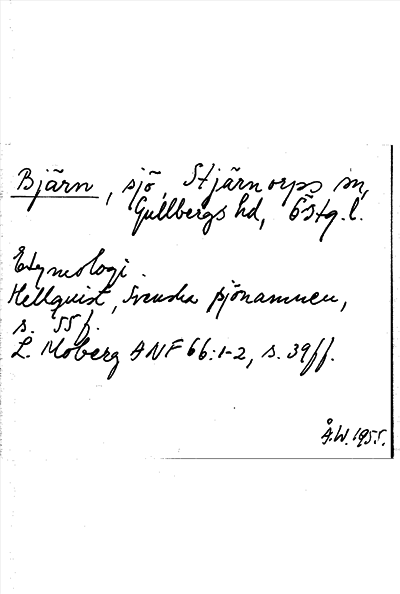 Bjärn, sjö, Stjärnorps sn,
Gullbergs hd, Östg.l.
Etymologi.
Hellquist, Svenska sjönamnen,
s. 55 f.
L. Moberg ANF 66:1-2, s. 39ff.
Å.W. 1955.